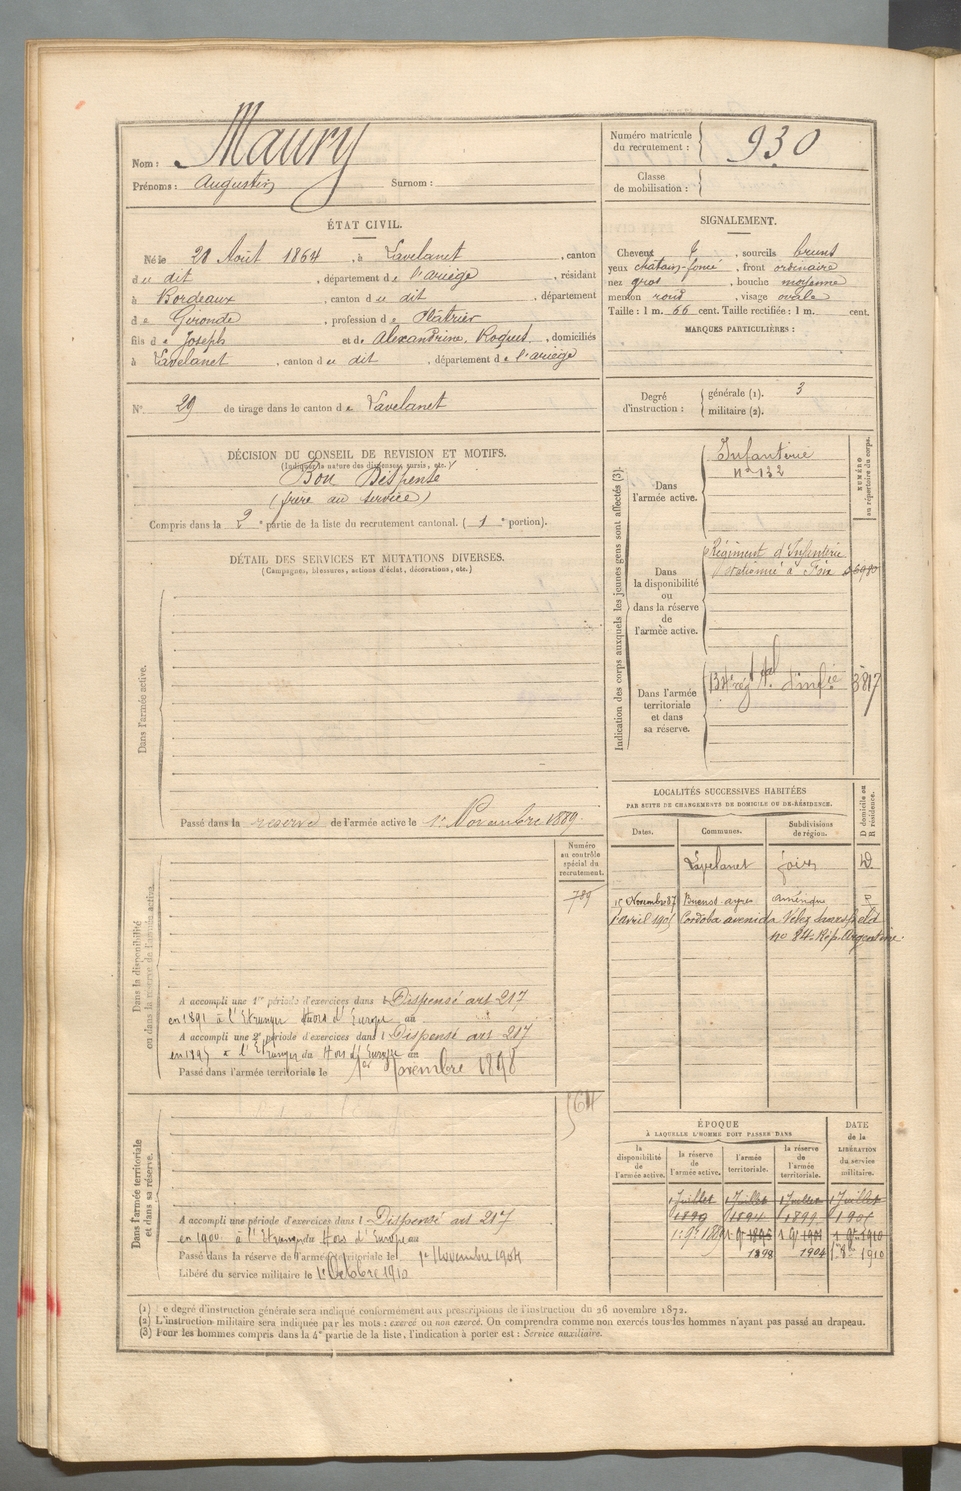 Nom : Maury
Prénoms : Augustin Surnom :
Numéro matricule du recrutement : 930
Classe de mobilisation :
ÉTAT CIVIL.
Né le 28 Août 1864, à Lavelanet, canton
du dit, département de l'ariège, résidant
à Bordeaux, canton du dit, département
de Gironde, profession de Plâtrier
fils de Joseph et de Alexandrine Roques, domiciliés
à Lavelanet, canton du dit, département de l'ariège
N° 29 de tirage dans le canton de Lavelanet
SIGNALEMENT.
Cheveux et, sourcils bruns
yeux châtain-foncé, front ordinaire
nez gros, bouche moyenne
menton rond, visage ovale
Taille : 1 m. 66 cent. Taille rectifiée : 1 m. cent.
MARQUES PARTICULIÈRES :
Degré d'instruction :
générale (1). 3
militaire (2).
DÉCISION DU CONSEIL DE REVISION ET MOTIFS.
(Indiquer la nature des dispenses, sursis, etc.)
Bon Dispensé
(frère au service)
Compris dans la 2e partie de la liste du recrutement cantonal. (1e portion).
DÉTAIL DES SERVICES ET MUTATIONS DIVERSES.
(Campagnes, blessures, actions d'éclat, décorations, etc.)
Dans l'armée active.
Passé dans la réserve de l'armée active le 1er Novembre 1889
Indication des corps auxquels les jeunes gens sont affectés (3).
NUMÉRO au répertoire du corps.
Dans l'armée active.
Infanterie
n° 132
Dans la disponibilité ou dans la réserve de l'armée active.
Régiment d'Infanterie
stationné à Foix
Dans l'armée territoriale et dans sa réserve.
134e rég t al d'inf ie 3817
LOCALITÉS SUCCESSIVES HABITÉES
PAR SUITE DE CHANGEMENTS DE DOMICILE OU DE RÉSIDENCE.
Dates. Communes. Subdivisions de région. D domicile ou R résidence.
Lavelanet foix D
15 Novembre 87 Buenos-ayres Amérique R
1 avril 1905 Cordoba avenida Velez Sarsfield
no 84 Rép. Argentine.
Dans la disponibilité ou dans la réserve de l'armée active.
Numéro au contrôle spécial du recrutement.
789
A accompli une 1re période d'exercices dans l Dispensé art 217
en 1891 à l'Etranger Hors d'Europe au
A accompli une 2e période d'exercices dans l Dispensé art 217
en 1895 à l'Etranger du Hors d'Europe au
Passé dans l'armée territoriale le 1er Novembre 1898
Dans l'armée territoriale et dans sa réserve.
564
A accompli une période d'exercices dans l Dispensé art 217
en 1900 à l'Etranger du Hors d'Europe au
Passé dans la réserve de l'armée territoriale le 1er Novembre 1904
Libéré du service militaire le 1er Octobre 1910
ÉPOQUE
À LAQUELLE L'HOMME DOIT PASSER DANS
DATE de la LIBÉRATION du service militaire.
la disponibilité de l'armée active. la réserve de l'armée active. l'armée territoriale. la réserve de l'armée territoriale.
1 Juillet 1 Juillet 1 Juillet 1 Juillet
1890 1894 1899 1905
1er 9bre 1889 1er 9bre 1895 1er 9bre 1901 1er 9bre 1910
1898 1904 1er 8bre 1910
(1) Le degré d'instruction générale sera indiqué conformément aux prescriptions de l'instruction du 26 novembre 1872.
(2) L'instruction militaire sera indiquée par les mots : exercé ou non exercé. On comprendra comme non exercés tous les hommes n'ayant pas passé au drapeau.
(3) Pour les hommes compris dans la 4e partie de la liste, l'indication à porter est : Service auxiliaire.